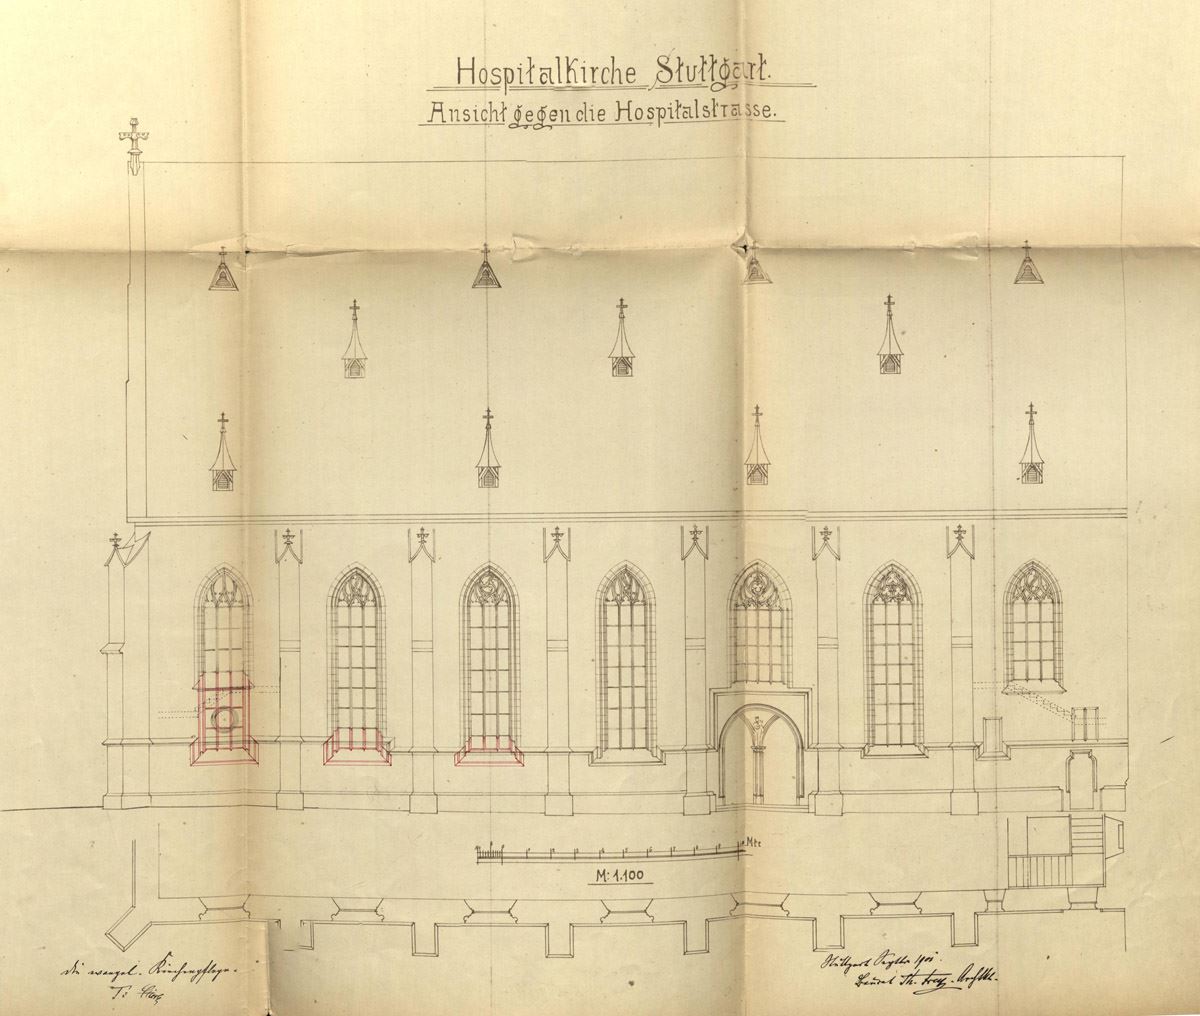 Hospitalkirche Stuttgart.
Ansicht gegen die Hospitalstrasse.
Mtr
M: 1.100
Die evangel. Kirchenpflege.
Stuttgart Septbr 1901.
Baurat Th. Frey. Archtkt.